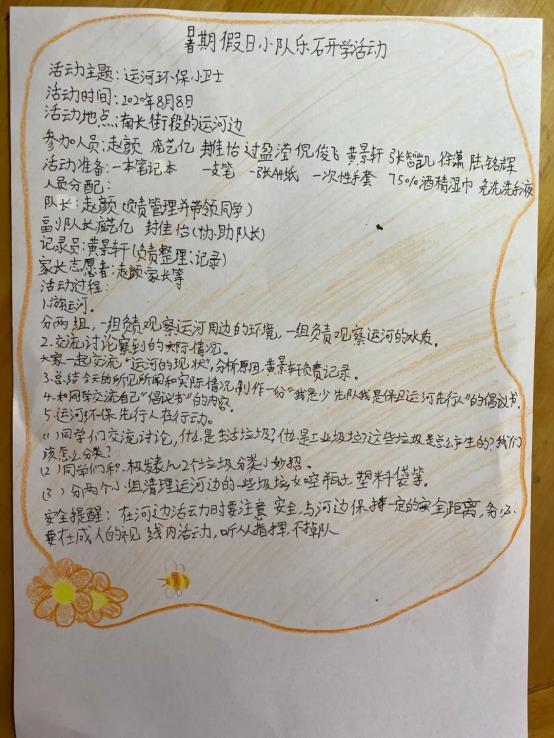 暑期假日小队乐石开学活动
活动主题:运河环保小卫士
活动时间:2020年8月8日
活动地点:南长街段的运河边
参加人员:赵颜 庞艺亿 封佳怡 过盈滢 倪俊飞 黄景轩 张智凯 徐潇 陆铭辉
活动准备:一本笔记本 一支笔 一张A4纸 一次性手套 75%酒精湿巾 免洗洗手液
人员分配:
队长:赵颜(负责管理并带领同学)
副队长:庞艺亿 封佳怡(协助队长)
记录员:黄景轩(负责整理、记录)
家长志愿者:赵颜家长等
活动过程:
1.游运河。
分两组,一组负责观察运河周边的环境,一组负责观察运河的水质。
2.交流讨论察到的实际情况。
大家一起交流“运河的现状”,分析原因,黄景轩负责记录。
3.总结今天的所见所闻和实际情况,制作一份“我是少先队我是保卫运河先行人”的倡议书。
4.和同学交流自己“倡议书”的内容。
5.运河环保先行人在行动。
(1)同学们交流讨论,什么是生活垃圾?什么是工业垃圾?这些垃圾是怎么产生的?我们
该怎么分类?
(2)同学们积极发表几个垃圾分类小妙招。
(3)分两个小组清理运河边的一些垃圾,如空瓶子、塑料袋等。
安全提醒:在河边活动时要注意安全,与河边保持一定的安全距离,务必
要在成人的视线内活动,听从指挥,不掉队